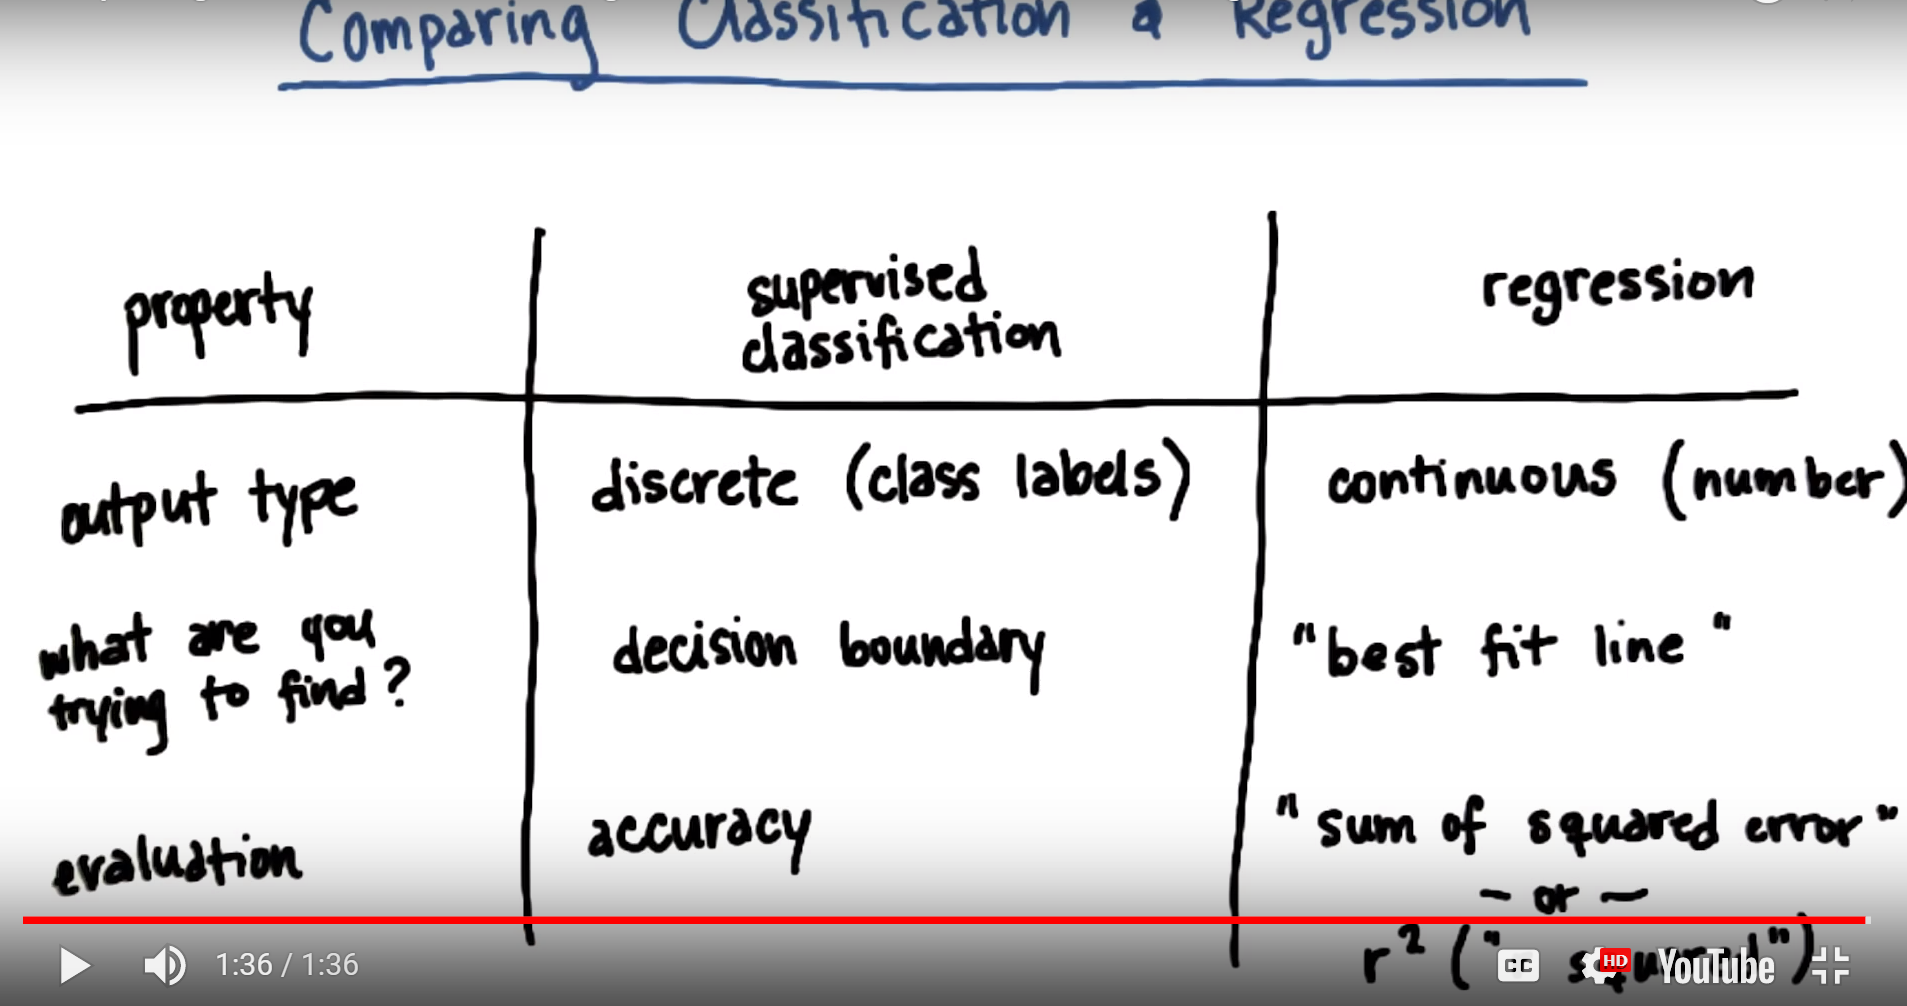 Comparing Classification & Regression
property
supervised
classification
regression
output type
discrete (class labels)
continuous (number)
what are you
trying to find?
decision boundary
"best fit line"
evaluation
accuracy
"sum of squared error"
- or -
r² ("
1:36 / 1:36
CC
HD
YouTube